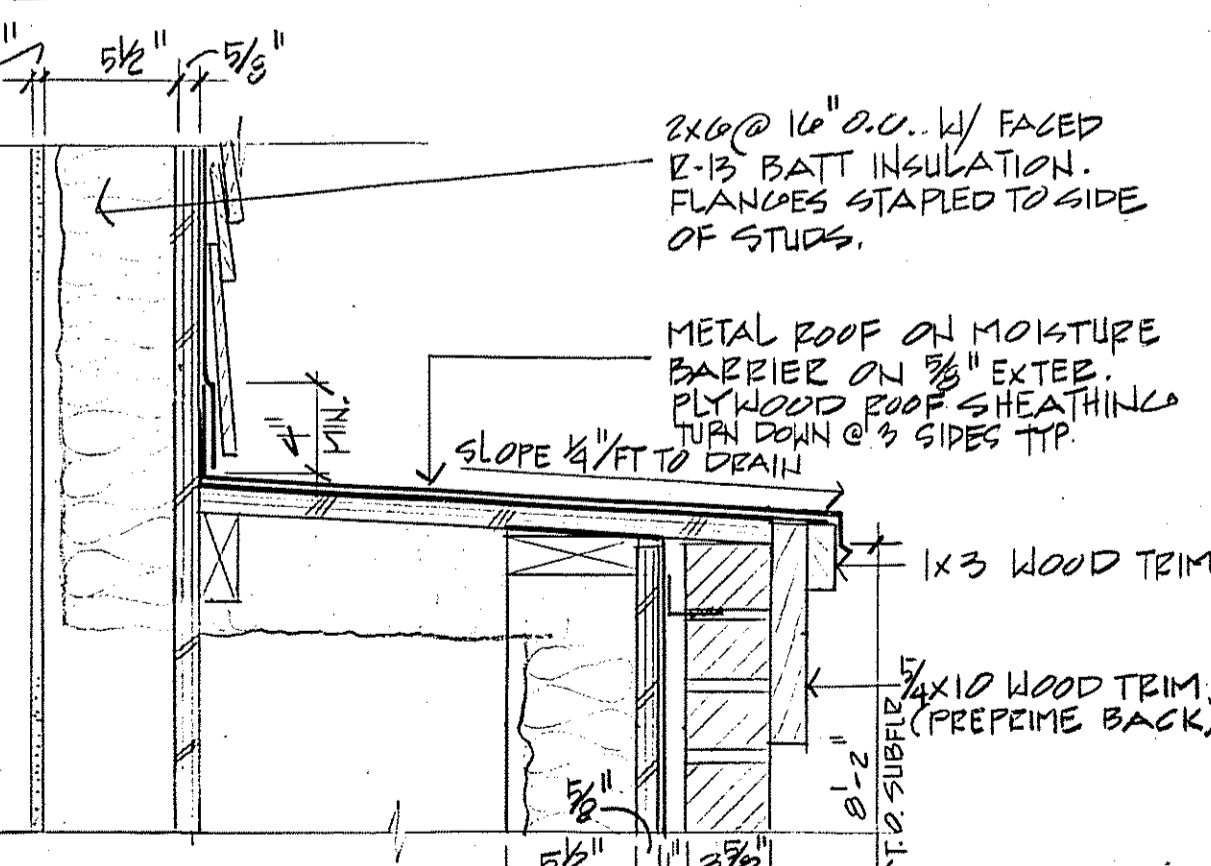 5½" 5/8"
2X6@ 16" O.C.. W/ FACED
R-13 BATT INSULATION.
FLANGES STAPLED TO SIDE
OF STUDS.
METAL ROOF ON MOISTURE
BARRIER ON 5/8" EXTER.
PLYWOOD ROOF SHEATHING
TURN DOWN @ 3 SIDES TYP.
SLOPE ¼"/FT TO DRAIN
4" MIN.
1X3 WOOD TRIM
5/4X10 WOOD TRIM.
(PREPRIME BACK)
8'-2"
T.O. SUBFLR
5/8"
5½" 1" 3⅝"